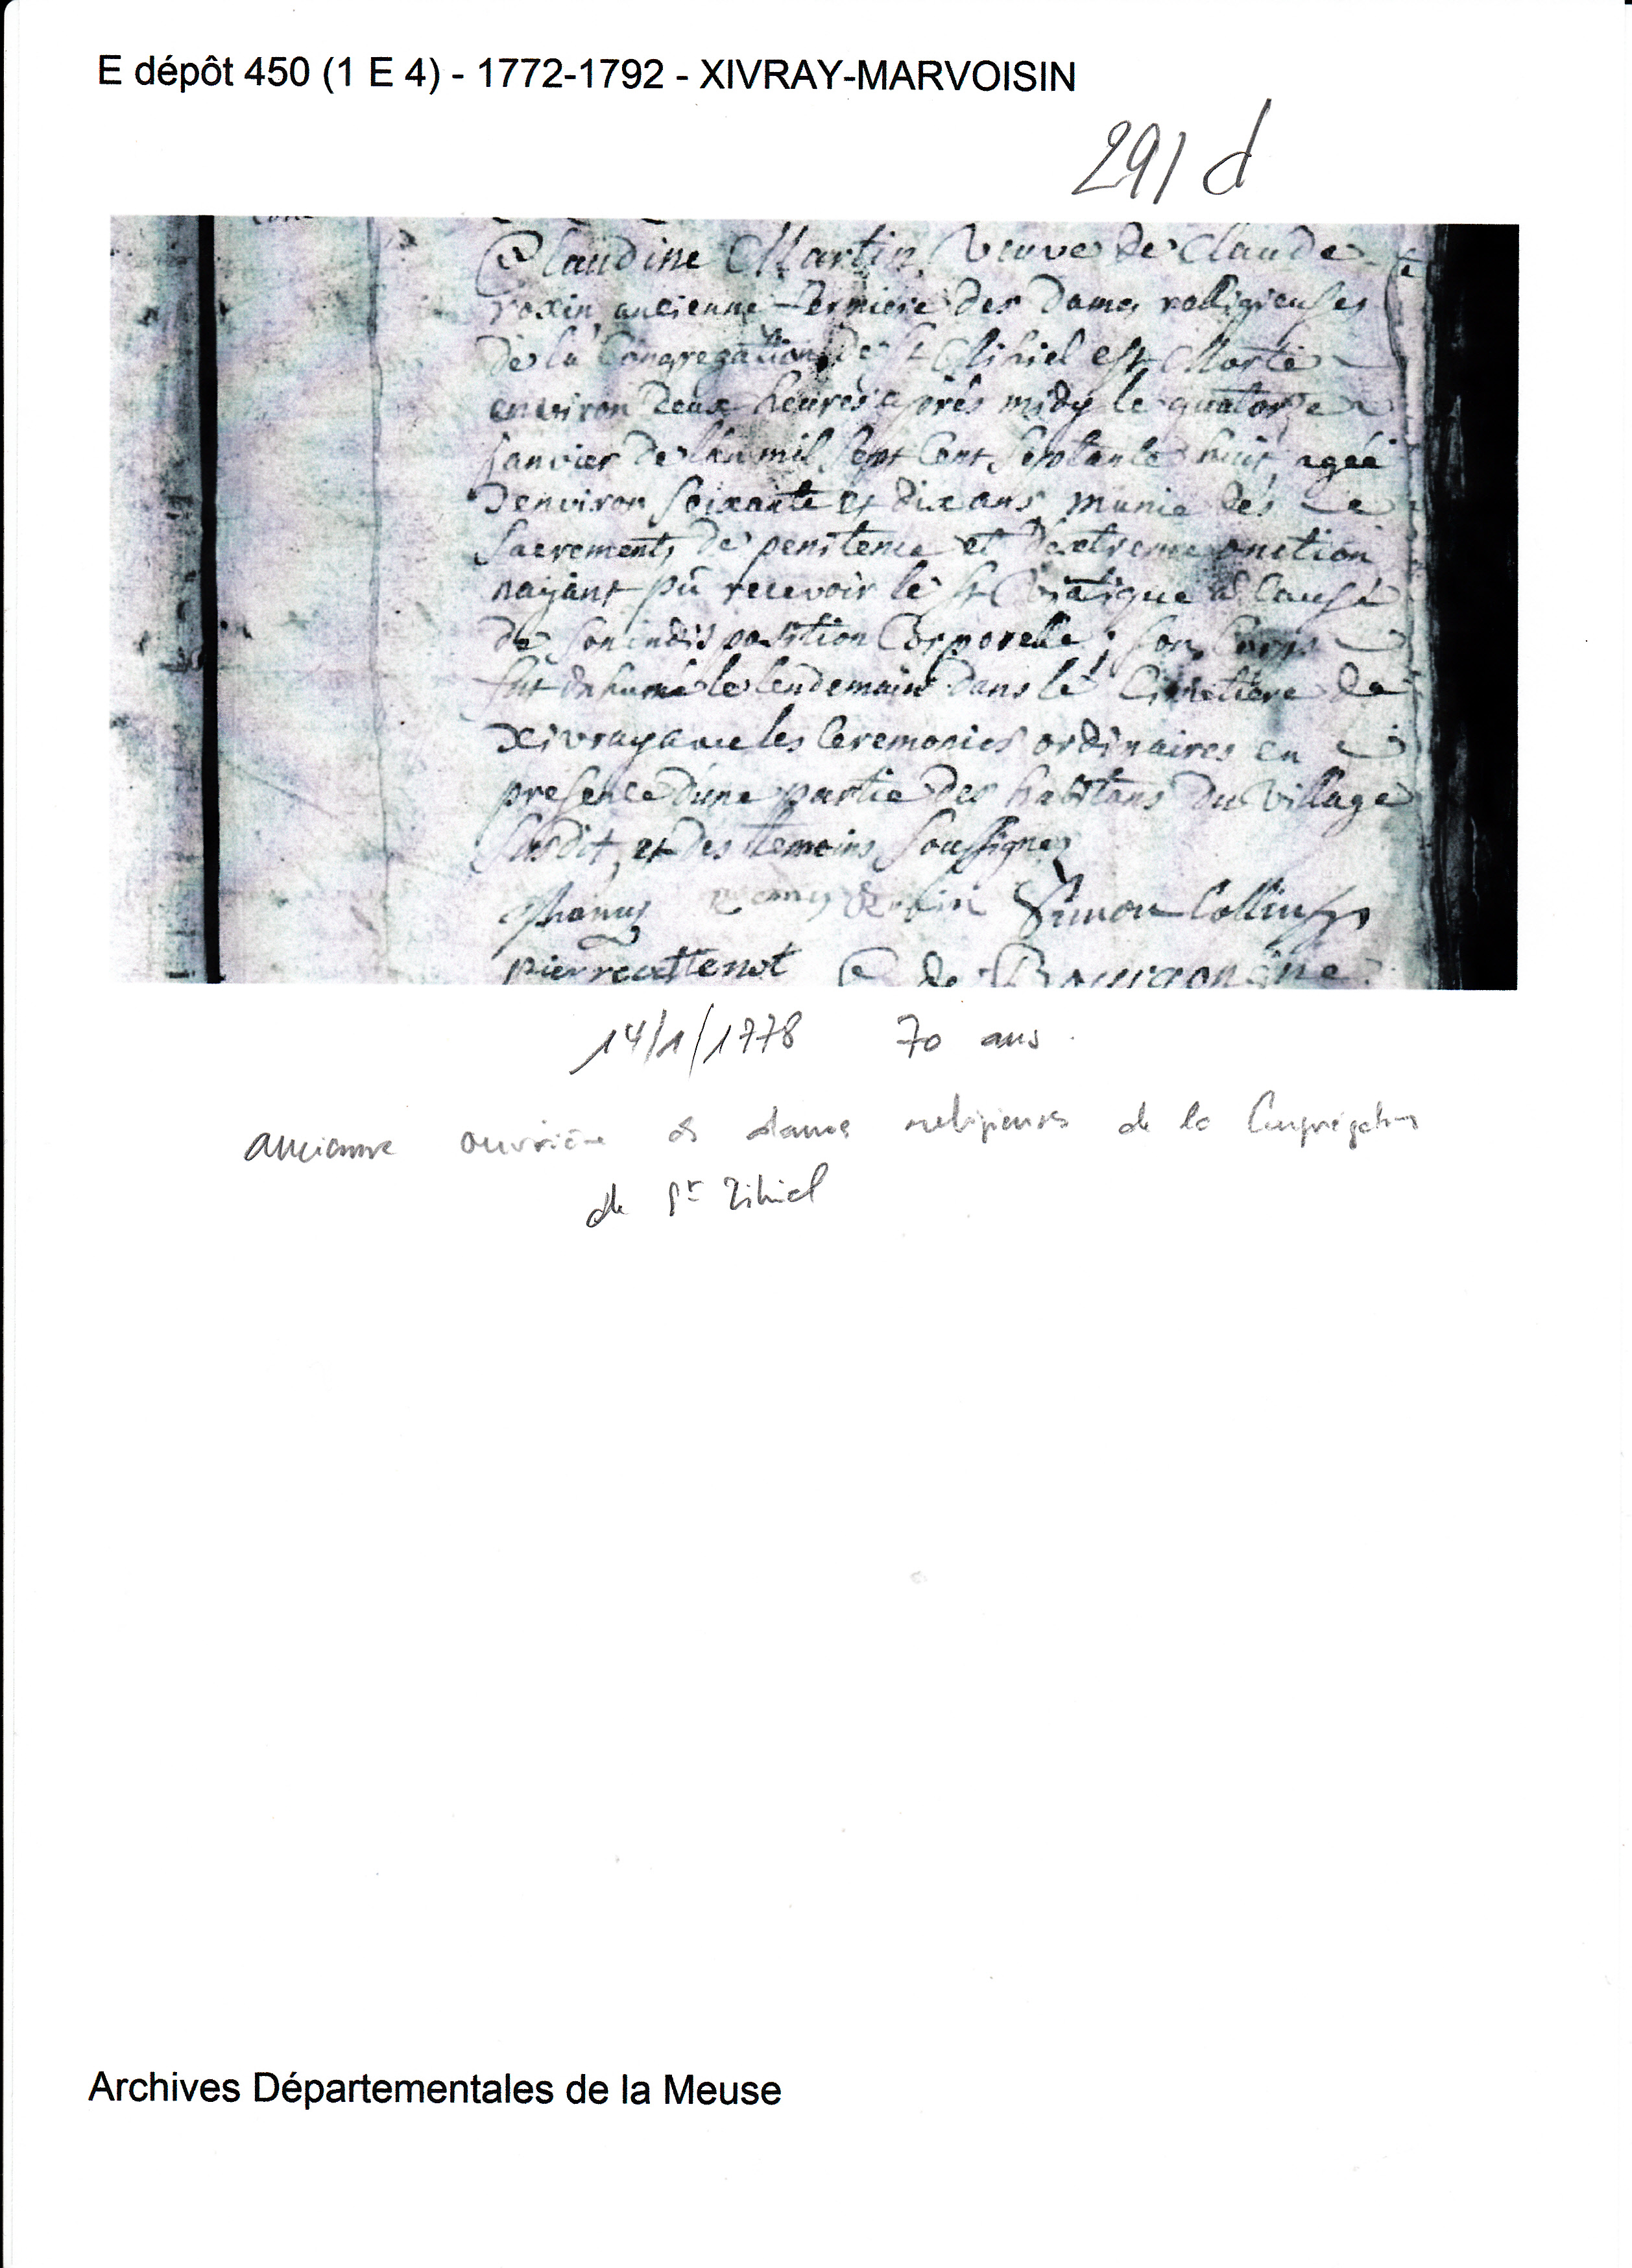 E dépôt 450 (1 E 4) - 1772-1792 - XIVRAY-MARVOISIN
291 d
Claudine Martin, veuve de Claude
roxin ancienne fermiere des dames relligieuses
de la Congregation de st Mihiel est Morte
environ deux heures après midy le quatorze
janvier de l'an mil sept Cent septante huit, ageé
denviron soixante et dix ans munie des
sacrements de penitence et dextreme onction
nayant pû recevoir le st Viatique a Cause
de son indisposition Corporelle; son Corps
fut inhumé le lendemain dans le Cimetiere de
xivray avec les Ceremonies ordinaires en
presence dune partie des habitans du village
susdit, et des temoins soussignes
Simon Collin
pierre de Bourgongne
14/1/1778 70 ans.
ancienne ouvrière ds dames religieuses de la Congrégation
de St Mihiel
Archives Départementales de la Meuse